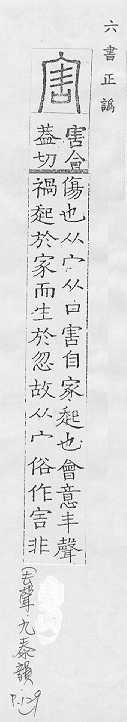 六書正譌
害
害會
葢切
傷也从宀从口害自家起也會意丯聲
禍起於家而生於忽故从宀俗作害非
(去聲九泰韻
P.129